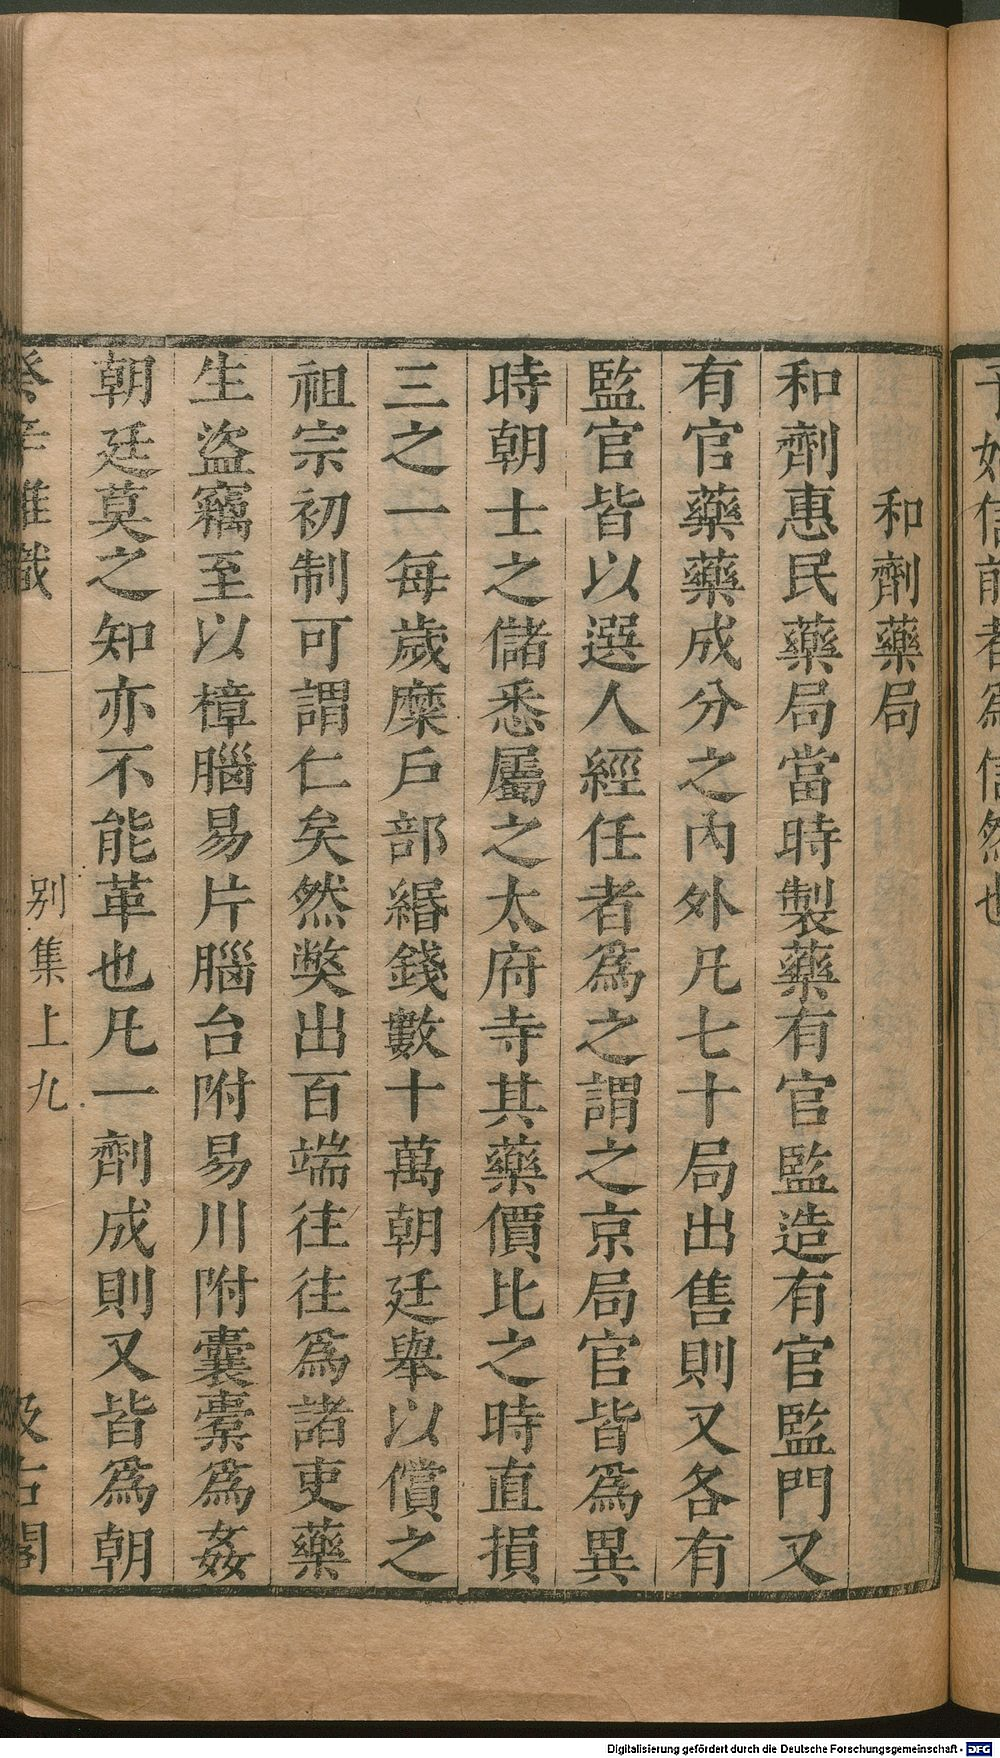 和劑藥局
和劑惠民藥局當時製藥有官監造有官監門又
有官藥藥成分之內外凡七十局出售則又各有
監官皆以選人經任者爲之謂之京局官皆爲異
時朝士之儲悉屬之太府寺其藥價比之時直損
三之一每歲糜戶部緡錢數十萬朝廷舉以償之
祖宗初制可謂仁矣然獘出百端往往爲諸吏藥
生盜竊至以樟腦易片腦台附易川附囊橐爲姦
朝廷莫之知亦不能革也凡一劑成則又皆爲朝
癸辛雜識
別集上
九
汲古閣
好信前者爲信然也
Digitalisierung gefördert durch die Deutsche Forschungsgemeinschaft - DFG